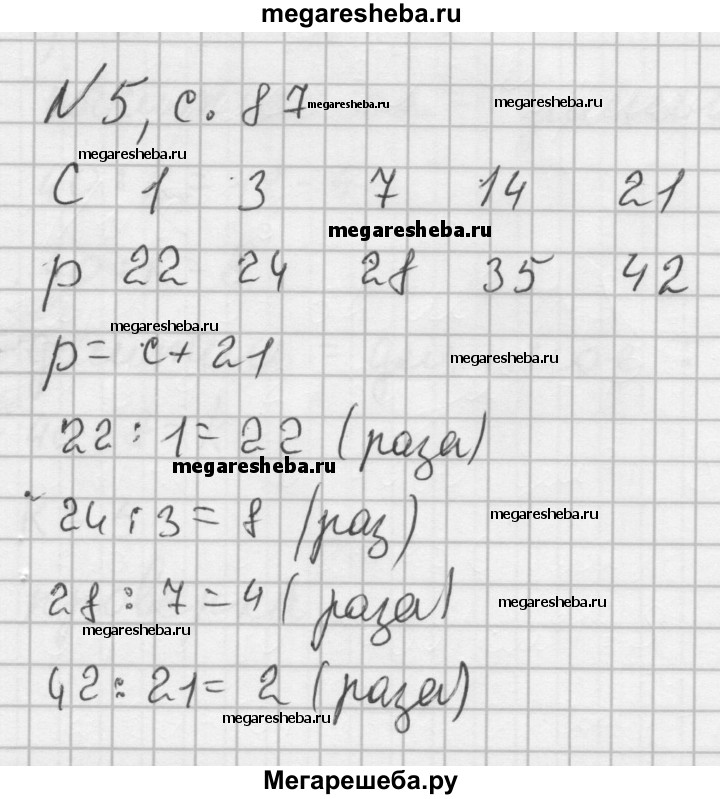 megaresheba.ru
N 5, с. 87 megaresheba.ru megaresheba.ru
megaresheba.ru
С 1 3 7 14 21
megaresheba.ru
р 22 24 28 35 42
megaresheba.ru
р = с + 21 megaresheba.ru
22 : 1 = 22 (раза)
megaresheba.ru
24 : 3 = 8 (раз) megaresheba.ru
28 : 7 = 4 (раза) megaresheba.ru
megaresheba.ru
42 : 21 = 2 (раза)
megaresheba.ru
Мегарешеба.ру